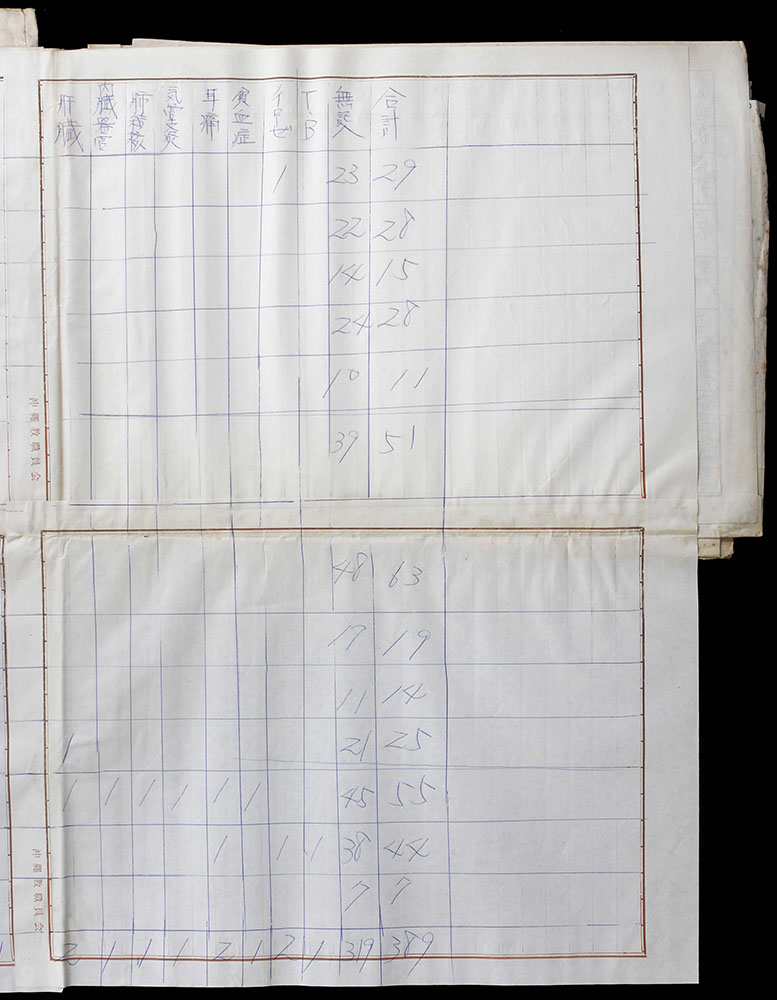 肝臓 内臓器官 肺結核 気管支炎 耳痛 貧血症 イローゼ TB 無記入 合計
1 23 29
22 28
14 15
24 28
10 11
39 51
沖縄教職員会
48 63
17 19
11 14
1 21 25
1 1 1 1 1 1 45 55
1 1 1 38 44
7 7
沖縄教職員会
2 1 1 1 2 1 2 1 319 389